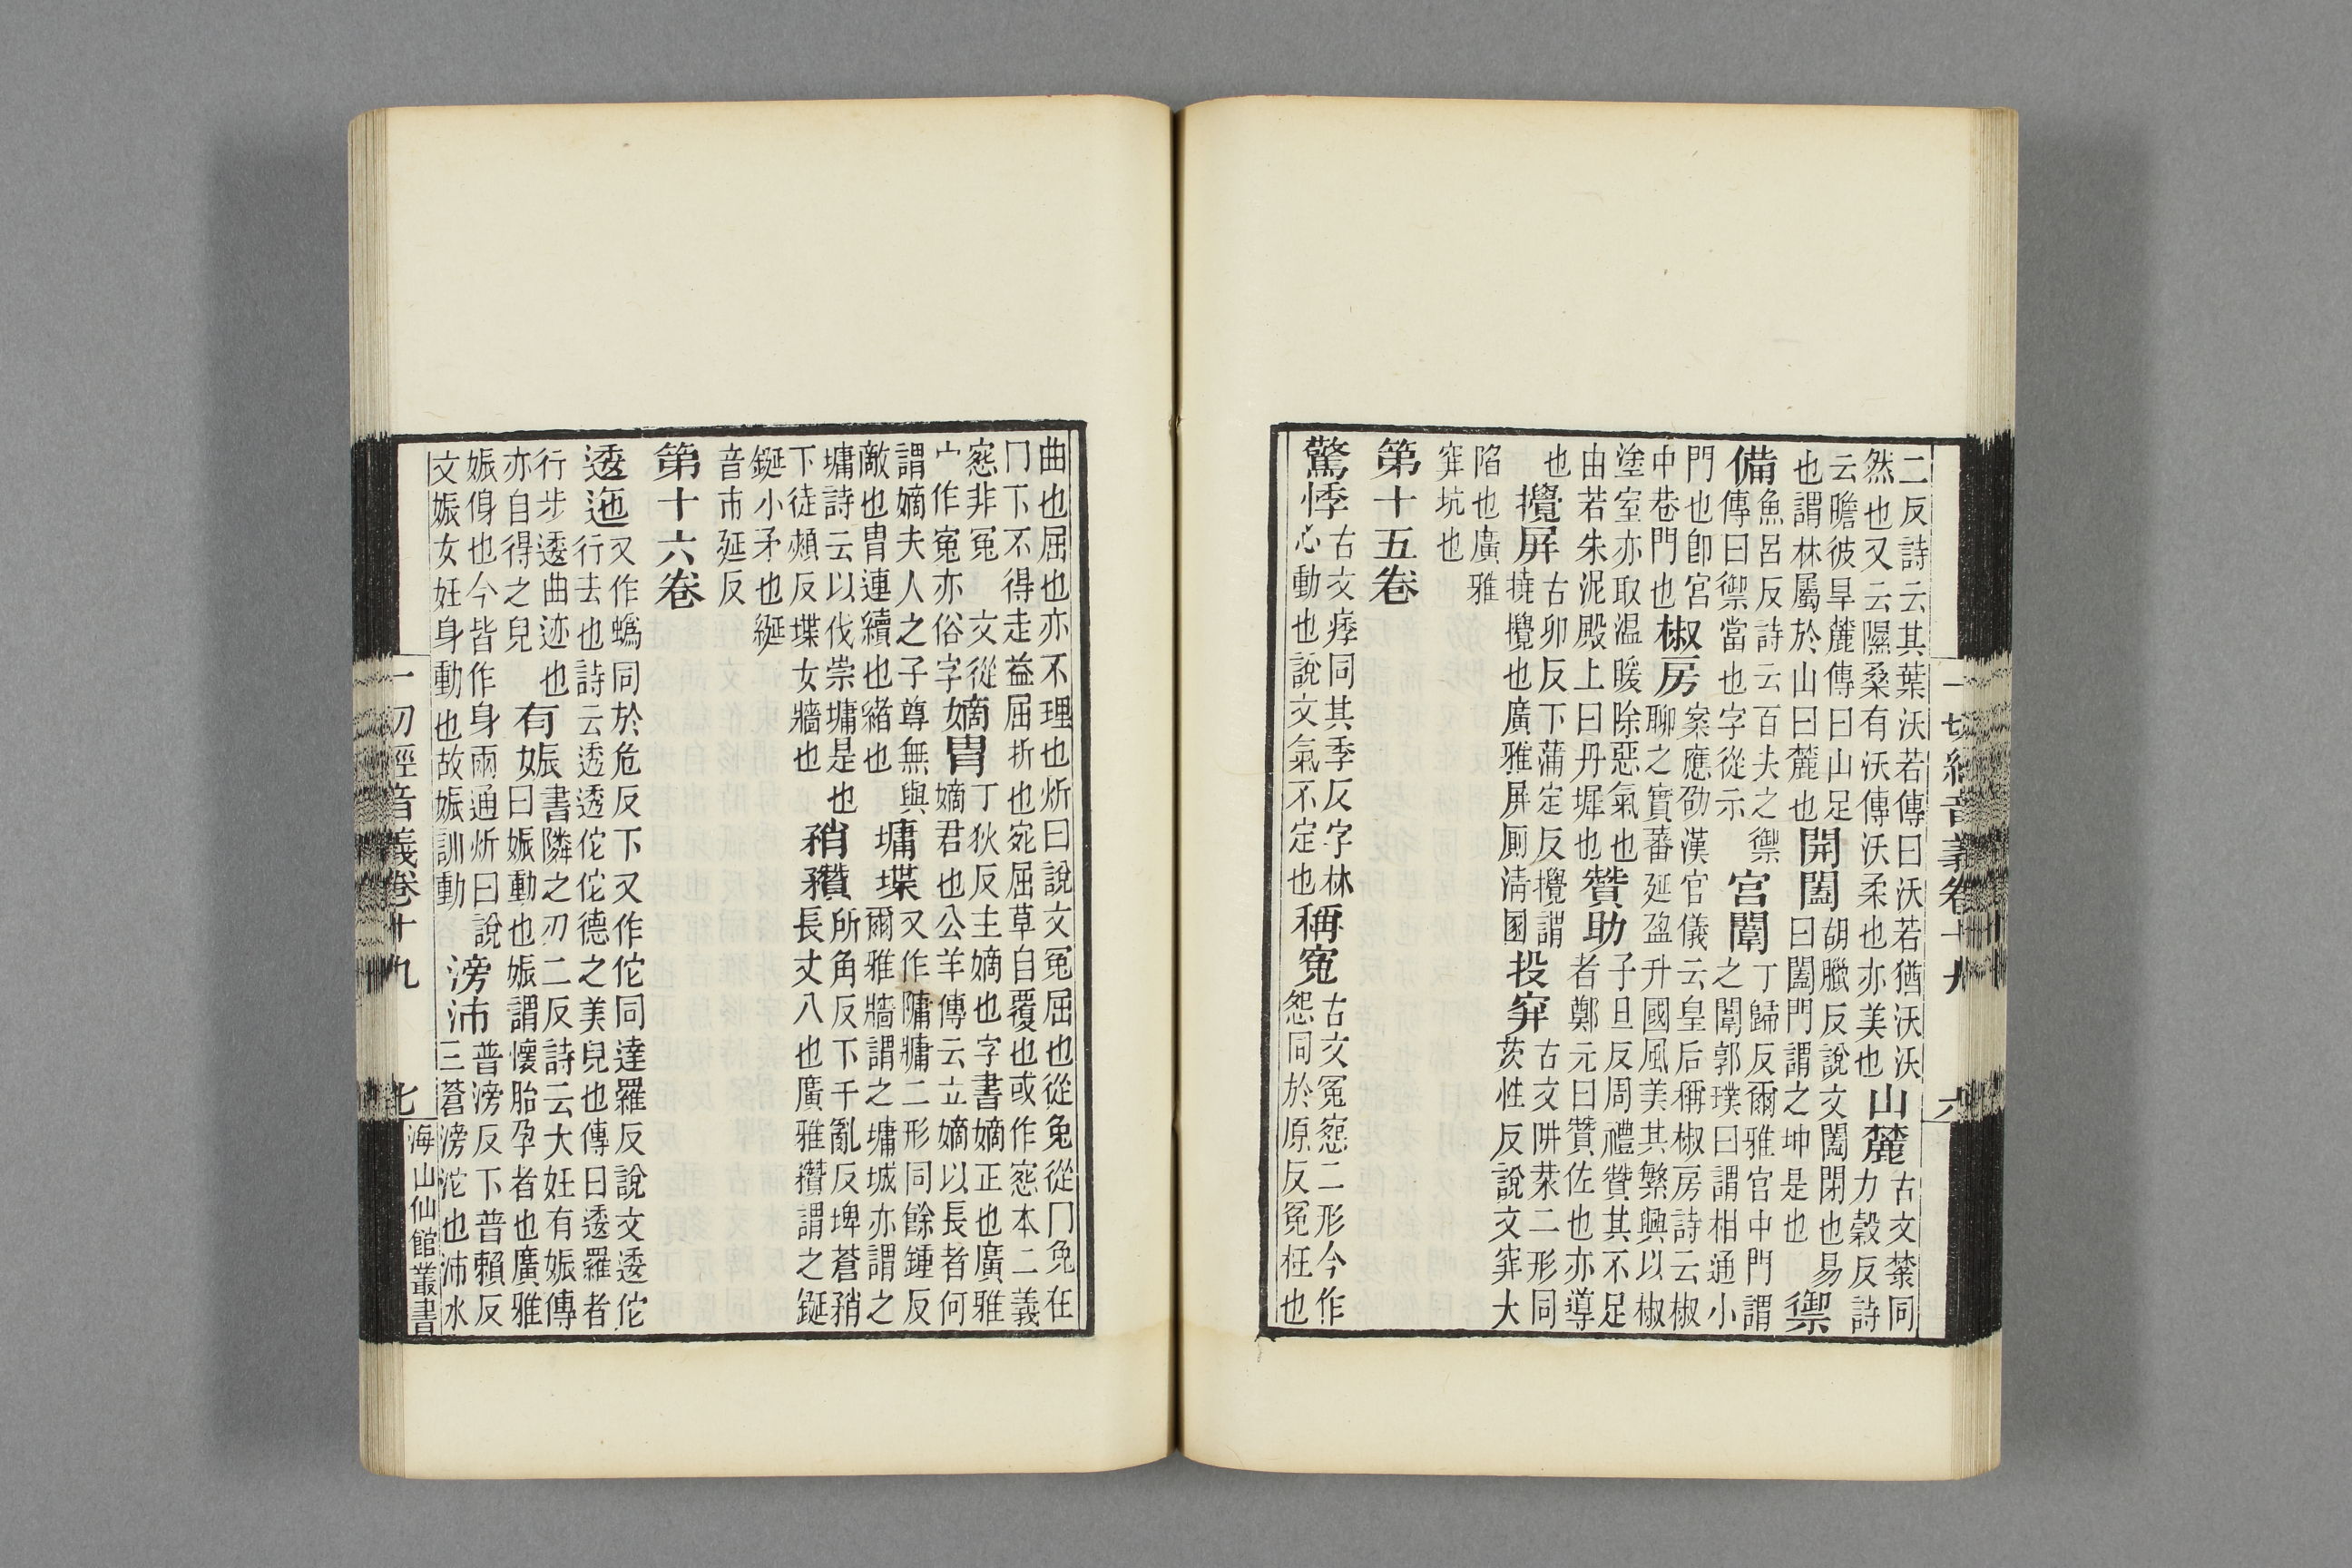 二反詩云其葉沃若傳曰沃若猶沃沃然也又云隰桑有沃傳沃柔也亦美也山麓古文䔽同力穀反詩
云瞻彼旱麓傳曰山足也謂林屬於山曰麓也開闔胡臘反說文闔閉也易曰闔門謂之坤是也禦
備魚呂反詩云百夫之禦傳曰禦當也字從示宮闈丁歸反爾雅宮中門謂之闈郭璞曰謂相通小
門也卽宮中巷門也椒房案應劭漢官儀云皇后稱椒房詩云椒聊之實蕃延盈升國風美其繁興以椒
塗室亦取温暖除惡氣也由若朱泥殿上曰丹墀也贊助子旦反周禮贊其不足者鄭元曰贊佐也亦導
也攪屏古卯反下蒲定反攪謂撓攪也廣雅屏厠清圂投穽古文阱汬二形同茨性反說文穽大
陷也廣雅穽坑也
第十五卷
驚悸古文痵同其季反字林心動也說文氣不定也稱寃古文寃惌二形今作怨同於原反寃枉也
一切經音義卷十九
六
曲也屈也亦不理也炘曰說文寃屈也從兔從冂兔在冂下不得走益屈折也宛屈草自覆也或作惌本二義
惌非寃文從宀作寃亦俗字嫡冑丁狄反主嫡也字書嫡正也廣雅嫡君也公羊傳云立嫡以長者何
謂嫡夫人之子尊無與敵也冑連續也緒也墉堞又作㙲牗二形同餘鍾反爾雅牆謂之墉城亦謂之
墉詩云以伐崇墉是也下徒頰反堞女牆也矟䂎所角反下千亂反埤蒼矟長丈八也廣雅䂎謂之鋋
鋋小矛也綖音市延反
第十六卷
逶迤又作蟡同於危反下又作佗同達羅反說文逶佗行去也詩云逶逶佗佗德之美皃也傳曰逶羅者
行步逶曲迹也亦自得之皃有娠書隣之刃二反詩云大妊有娠傳曰娠動也娠謂懷胎孕者也廣雅
娠㑗也今皆作身兩通炘曰說文娠女妊身動也故娠訓動滂沛普滂反下普賴反三蒼滂沱也沛水
一切經音義卷十九
七
海山仙館叢書